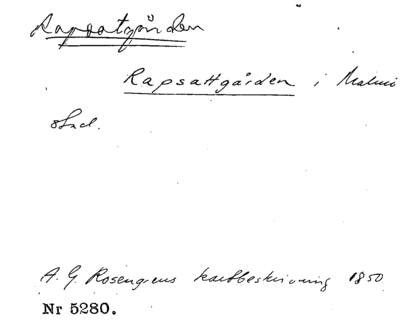 Rapsatgården
Rapsattgården i Malmö
stad.
A. G. Rosengrens kartbeskrivning 1850
Nr 5280.